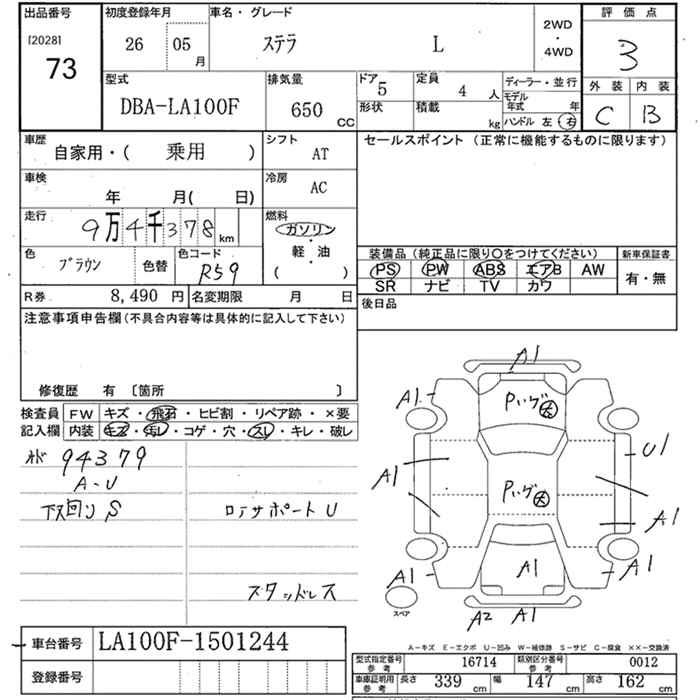 出品番号
[2028]
73
初度登録年月
26 05 月
車名・グレード
ステラ L
2WD
・
4WD
評価点
3
外装 内装
C B
型式
DBA-LA100F
排気量
650 CC
ドア 5
形状
定員 4 人
積載 kg
ディーラー・並行
モデル年式 年
ハンドル 左 右
車歴
自家用・( 乗用 )
シフト
AT
車検
年 月( 日)
冷房
AC
走行
9万4千378 km
燃料
ガソリン
・
軽・油
( )
色
ブラウン
色替
色コード
R59
R券 8,490 円
名変期限 月 日
セールスポイント (正常に機能するものに限ります)
装備品(純正品に限り○をつけてください)
新車保証書
PS PW ABS エアB AW
SR ナビ TV カワ
有・無
後日品
注意事項申告欄(不具合内容等は具体的に記入して下さい)
修復歴 有 〔箇所 〕
検査員
記入欄
FW キズ・飛石・ヒビ割・リペア跡・×要
内装 キズ・汚レ・コゲ・穴・スレ・キレ・破レ
94379
A-U
下回り S
リアサポート U
スタッドレス
A1
A1
A1
U1
A1
A1
A1
A1
A1
A2 A1
スペア
A-キズ E-エクボ U-凹み W-補修跡 S-サビ C-腐食 ××-交換済
車台番号 LA100F-1501244
登録番号
型式指定番号 参考 16714
類別区分番号 参考 0012
車庫証明用 参考 長さ 339 cm 幅 147 cm 高さ 162 cm